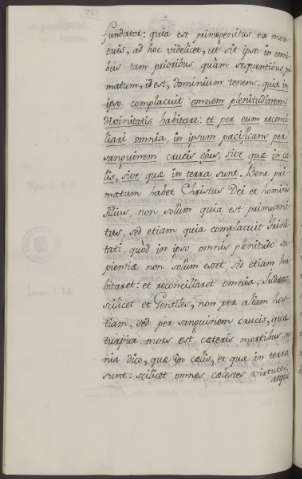 fundator: quia est primogenitus ex mor-
tuis, ad hoc videlicet, ut sit ipse in omni-
bus tam prioribus quàm sequentibus pri
matum, id est, dominium tenens, quia in
ipso complacuit omnem plenitudinem
divinitatis habitare: et per eum reconci-
liari omnia in ipsum pacificans per
sanguinem crucis ejus, sive quae in coe-
lis, sive quae in terra sunt. Bene pri
matum habet Christus Dei et hominis
filius, non solum quia est primogeni
tus, sed etiam quia complacuit Trini
tati quod in ipso omnis plenitudo sa-
pientiae non solum esset, sed etiam ha
bitaret: et reconciliaret omnia, Judaeos
scilicet et Gentiles, non per aliam hos-
tiam, sed per sanguinem crucis, quae
turpior mors est caeteris mortibus om
nia dico, quae in coelis, et quae in terra
sunt: scilicet omnes coelestes virtutes,
atque